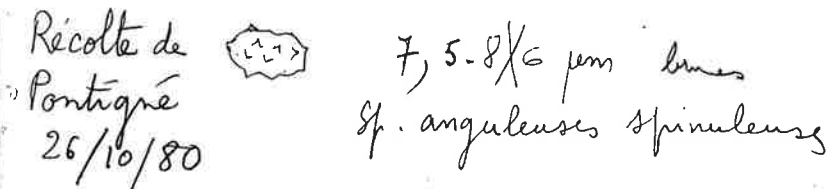 Récolte de
Pontigné
26/10/80
7,5-8/6 µm brunes
Sp. anguleuses spinuleuses